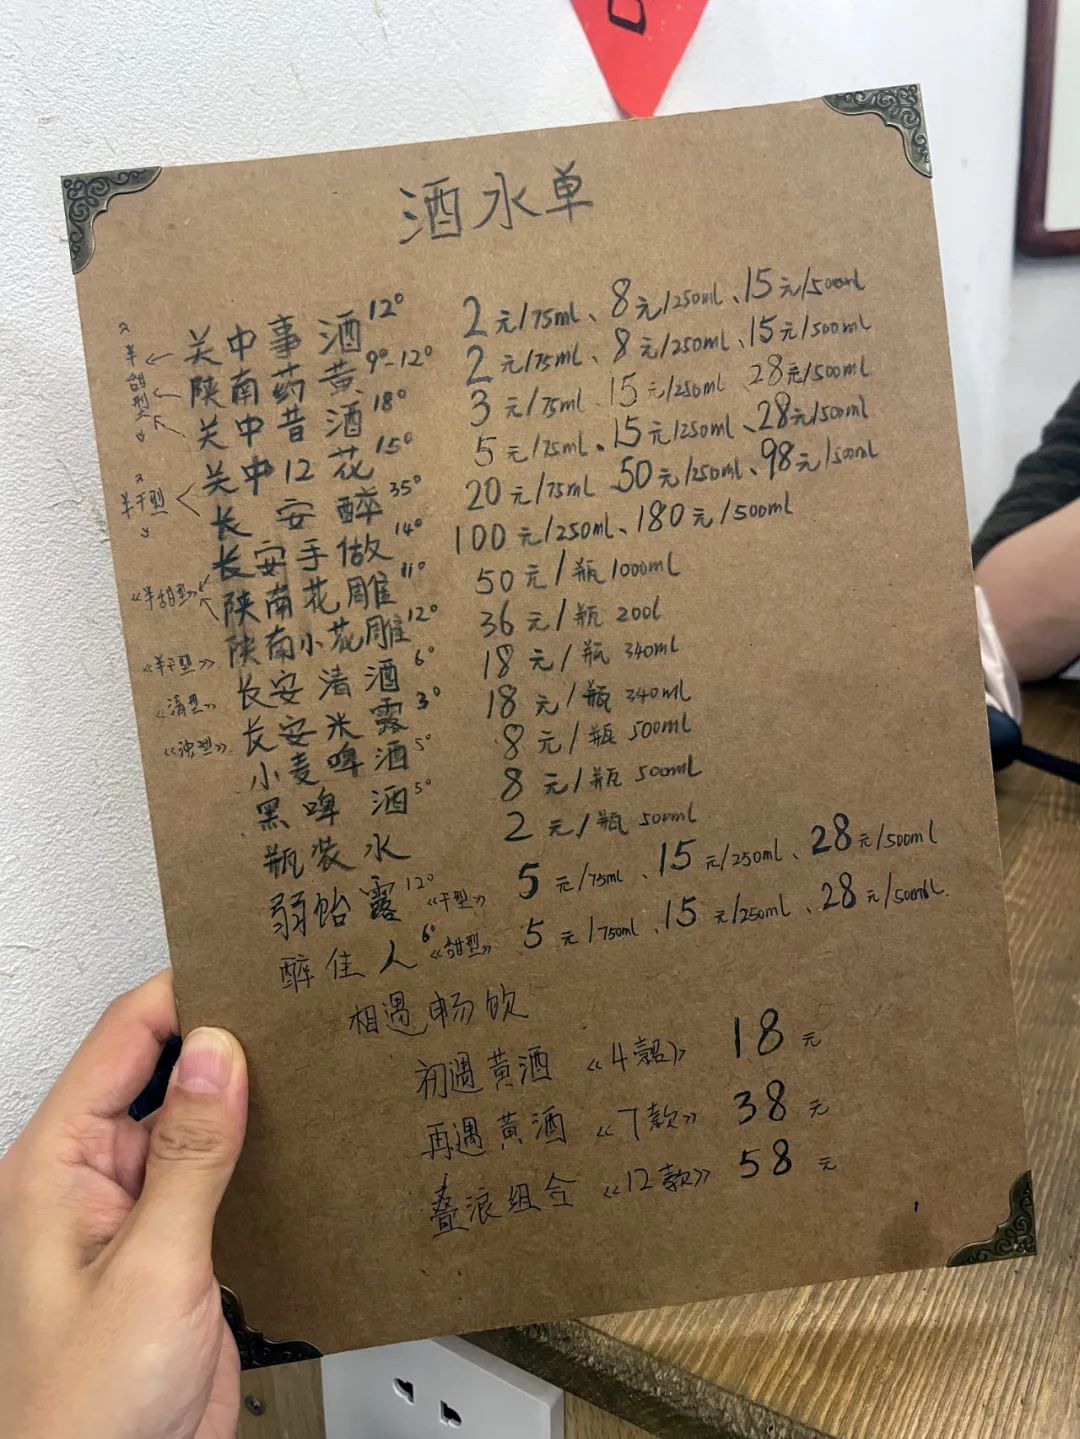 酒水单
关中事酒12° 2元/75ml、8元/250ml、15元/500ml
陕南药黄9°-12° 2元/75ml、8元/250ml、15元/500ml
关中昔酒18° 3元/75ml、15元/250ml 28元/500ml
关中12花15° 5元/75ml、15元/250ml、28元/500ml
长安醉35° 20元/75ml 50元/250ml、98元/500ml
长安手做14° 100元/250ml、180元/500ml
陕南花雕11° 50元/瓶 1000ml
陕南小花雕12° 36元/瓶 200l
长安清酒6° 18元/瓶 340ml
长安米露3° 18元/瓶 340ml
小麦啤酒5° 8元/瓶 500ml
黑啤酒5° 8元/瓶 500ml
瓶装水 2元/瓶 500ml
弱饴露12°《干型》 5元/75ml、15元/250ml、28元/500ml
醉佳人6°《甜型》 5元/750ml、15元/250ml、28元/500ml.
《半甜型》
《半干型》
《半甜型》
《半干型》
《清型》
《浓型》
相遇畅饮
初遇黄酒《4款》 18元
再遇黄酒《7款》 38元
叠浪组合《12款》 58元